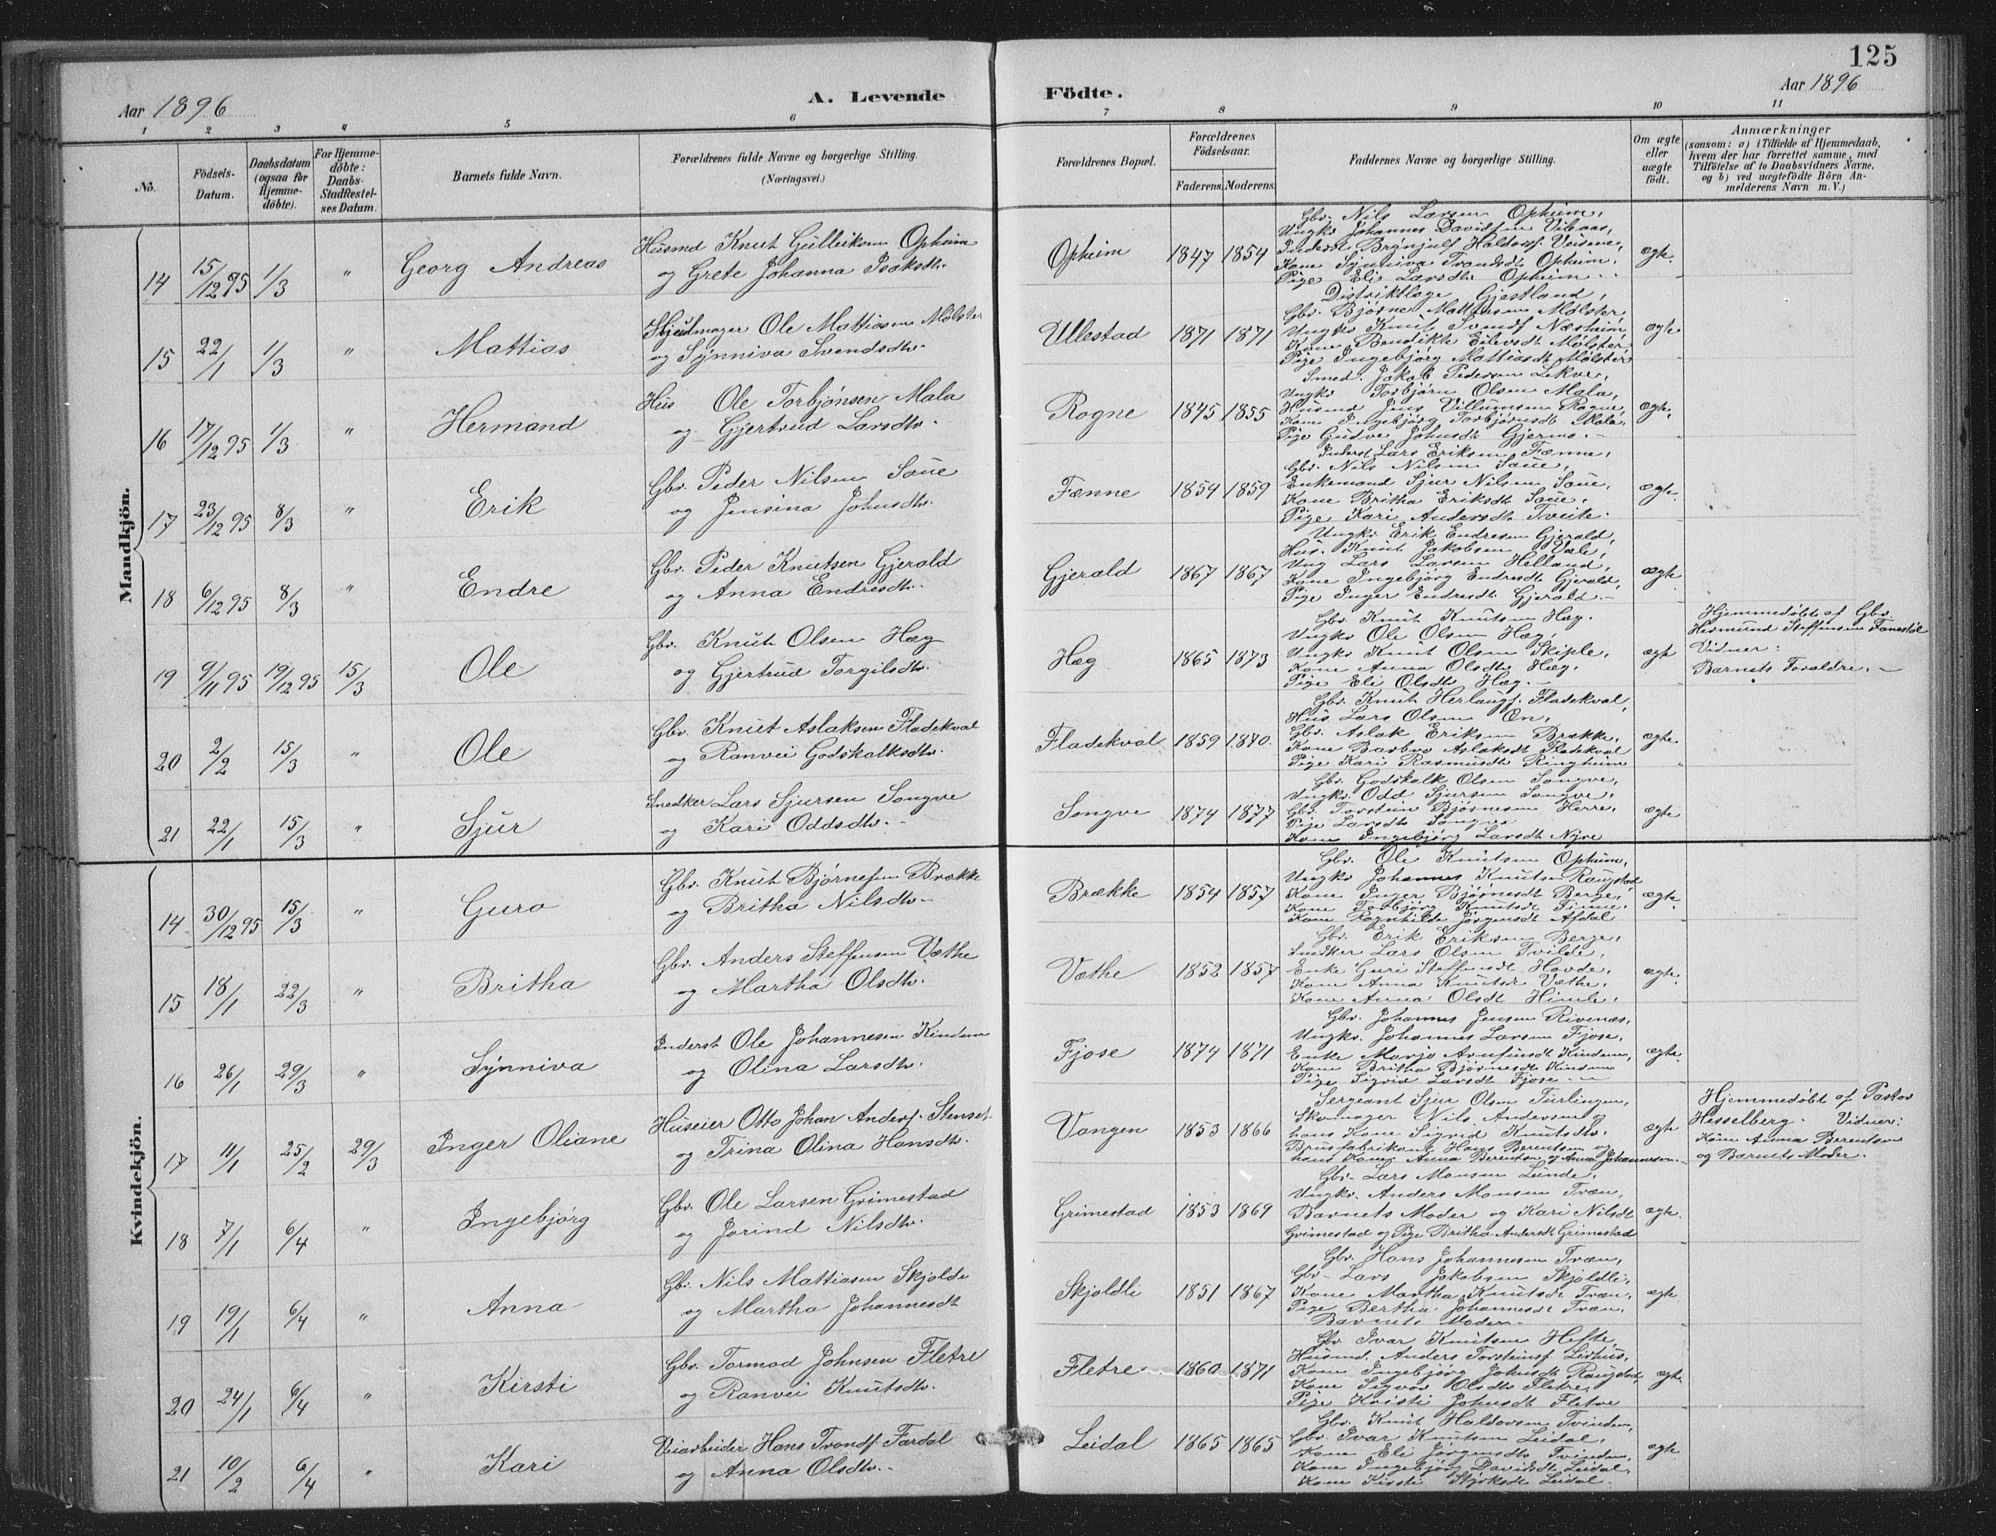 125
Aar 1896
A. Levende
Födte.
Aar 1896
1 2 3 4 5 6 7 8 9 10 11
No.
Födsels-Datum.
Daabsdatum (ogsaa for Hjemme-döbte).
For Hjemme-döbte: Daabs-Stadfæstel-ses Datum.
Barnets fulde Navn.
Forældrenes fulde Navne og borgerlige Stilling. (Næringsvei.)
Forældrenes Bopæl.
Forældrenes Födselsaar.
Faderens. Moderens.
Faddernes Navne og borgerlige Stilling.
Om ægte eller uægte födt.
Anmærkninger
(saasom: a) i Tilfælde af Hjemmedaab, hvem der har forrettet samme, med Tilföielse af to Daabsvidners Navne, og b) ved uægtefödte Börn An-melderens Navn m. V.)
Mandkjön.
14 15/12 95 1/3 " Georg Andreas
Husmd Knut Gulleiksen Opheim
og Grete Johanna Isaksdtr.
Opheim 1847 1854
Gbr. Nils Larsen Opheim,
Ungkr Johannes Davidsen Vibaas,
Inderst Brynjulf Haldorsf. Veisene,
Kone Synniva Trondsdt Opheim,
Pige Eli Larsdtr Opheim
ægte.
15 22/1 1/3 " Mattias
Hjulmager Ole Mattiasen Mølster
og Synniva Svendsdtr.
Ullestad 1871 1871
Distriktlæge Gjestland,
Gbr. Bjørne Mattiasen Mølster
Ungkr Knut Svendsf Næsheim
Kone Bendikte Eilevsdt Mølster
Pige Ingebjørg Mattiasdt Mølster
ægte
16 17/12 95 1/3 " Hermand
Hus Ole Torbjønsen Mala
og Gjertrud Larsdtr.
Rogne 1845 1855
Smed. Jakob Pedersen Lekve,
Ungkr Torbjørn Olsen Mala,
Husmd Jens Villumsen Rogne,
Kone Ingebjørg Torbjørnsdt Mala,
Pige Gudve Johnsdt Gjerme.
ægte.
17 23/12 95 8/3 " Erik
Gbr. Peder Nilsen Saue
og Jensina Johnsdtr.
Fænne 1854 1859
Inderst Lars Eriksen Fænne,
Gbr. Nils Nilsen Saue,
Enkemand Sjur Nilsen Saue,
Kone Britha Eriksdt Saue,
Pige Kari Andersdt Tveite.
ægte
18 6/12 95 8/3 " Endre
Gbr. Peder Knutsen Gjerald
og Anna Endresdtr.
Gjerald 1867 1867
Ungkr. Erik Endresen Gjerald,
Hus. Knut Jakobsen Væle,
Ung Lars Larsen Helland,
Kone Ingebjørg Endresdt Gjerald,
Pige Inger Endresdt Gjerald.
ægte
19 9/11 95 19/12 95 15/3 Ole
Gbr. Knut Olsen Hæg
og Gjertrud Torgilsdtr.
Hæg 1865 1873
Gbr Knut Knutsen Hæg.
Ungkr Ole Olsen Hæg,
Ungkr Knut Olsen Skiple,
Kone Anna Olsdtr Hæg,
Pige Eli Olsdtr Hæg.
ægte
Hjemmedøbt af Gbr.
Hermund Steffensen Fonestøl
Vidner:
Barnets Foraldre.
20 2/2 15/3 " Ole
Gbr. Knut Aslaksen Fladekval
og Ranvei Godskalksdtr.
Fladekval 1859 1870.
Gbr. Knut Herlaugs. Fladekval,
Hus Lars Olsen Øn,
Gbr. Aslak Eriksen Brække,
Kone Barbro Aslaksdt Fladekval
Pige Kari Rasmusdt Ringheim
ægte
21 22/1 15/3 " Sjur
Snedker Lars Sjursen Songve
og Kari Oddsdtr.
Songve 1874 1877
Gbr. Godskalk Olsen Songve,
Ungkr Odd Sjursen Songve,
Gbr. Torstein Bjørnesen Herre,
Pige Larsdtr Songve
Kone Ingebjørg Larsdt Nyre
ægte
Kvindekjön.
14 30/12 95 15/3 " Guro
Gbr. Knut Bjørnesen Brække
og Britha Nilsdtr.
Brække 1854 1857
Gbr. Ole Knutsen Opheim,
Ungkr Johannes Knutsen Raugstad,
Kone Inger Bjørnesdt Berge,
Kone Torbjørg Knutsdt Finne,
Kone Ragnhilde Jørgensdt Afdal
ægte.
15 18/1 22/3 " Britha
Gbr. Anders Steffensen Væthe
og Martha Olsdtr.
Væthe 1852 1857
Gbr. Erik Eriksen Berge,
Snedker Lars Olsen Tvilde,
Enke Guri Steffensdt Hovde,
Kone Anna Knutsdt Væthe,
Kone Anna Olsdt Himle,
ægte.
16 26/1 29/3 " Synniva
Inderst Ole Johannesen Kindem
og Olina Larsdtr.
Fjose 1874 1871
Gbr. Johannes Jensen Rivenæs,
Ungkr. Johannes Larsen Fjose,
Enke Marjo Arnfinsdt Kindem,
Kone Britha Bjørnesdt Kindem
Pige Sigrid Larsdt Fjose
ægte
17 11/1 25/2 29/3 Inger Oliane
Huseier Otto Johan Andersf. Stenset
og Trina Olina Hansdtr.
Vangen 1853 1866
Sergeant Sjur Olsen Türlingen,
Skomager Nils Andersen og
hans Kone Sigrid Knutsdtr.
Brusfabrikant Hans Berentsen og
hans Kone Anna Berentsen og Anna Johannesen
ægte
Hjemmedøbt af Pastor
Hesselberg. Vidner:
Kone Anna Berentsen
og Barnets Moder.
18 7/1 6/4 " Ingebjørg
Gbr. Ole Larsen Grimestad
og Jorind Nilsdtr.
Grimestad 1853 1869
Gbr. Lars Monsen Lunde,
Ungkr. Anders Monsen Træn,
Barnets Moder og Kari Nilsdt
Grimestad og Pige Britha Andersdt Grimestad
ægte.
19 19/1 6/4 " Anna
Gbr. Nils Mattiasen Skjolde
og Martha Johannesdt
Skjoldli 1851 1867
Gbr. Hans Johannesen Træn,
Gbr. Lars Jakobsen Skjoldli,
Kone Martha Knutsdt Træn,
Pige Bertha Johannesdt Træn,
Barnets Moder.
ægte
20 24/1 6/4 " Kirsti
Gbr. Tormod Johnsen Fletre
og Ranvei Knutsdtr.
Fletre 1860 1871
Gbr. Ivar Knutsen Hefte,
Husmd. Anders Torsteinsf Lirhus,
Kone Ingebjørg Johnsdt Raugstad,
Kone Sigvor Olsdtr Fletre,
Pige Kristi Johnsdt Fletre
ægte
21 10/2 6/4 " Kari
Veiarbeider Hans Trondsf. Fardal
og Anna Olsdtr.
Leidal 1865 1865
Gbr. Knut Haldorsen Tvinden,
Gbr. Ivar Knutsen Leidal,
Kone Eli Jørgensdt Tvinden,
Kone Ingebjørg Davidsdt Leidal,
Kone Kirsti Styrksdt Leidal.
ægte